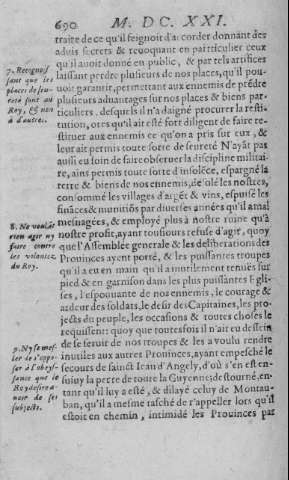 690 M. DC. XXI.
traite de ce qu'il feignoit d'accorder donnant des
aduis secrets & reuoquant en particulier ceux
qu'il auoit donné en public, & par tels artifices
laissant perdre plusieurs de nos places, qu'il pou-
uoit garantir, permettant aux ennemis de prédre
plusieurs aduantages sur nos places & biens par-
ticuliers, desquels il n'a daigné procurer la resti-
tution, ores qu'il ait esté fort diligent de faire re-
stituer aux ennemis ce qu'on a pris sur eux, &
leur ait permis toute sorte de seureté N'ayāt pas
aussi eu soin de faire obseruer la discipline militai-
re, ains permis toute sorte d'insoléce, espargné la
terre & biens de nos ennemis, desolé les nostres,
consommé les villages d'argēt & vins, espuisé les
fināces & munitiōs par diuerses années qu'il a mal
mesnagées, & employé plus à nostre ruine qu'à
nostre profit, ayant tousiours refusé d'agir, quoy
que l'Assemblée generale & les deliberations des
Prouinces ayent porté, & les puissantes troupes
qu'il a eu en main qu'il a inutilement tenuës sur
pied & en garnison dans les plus puissantes Egli-
ses, l'espouuante de nos ennemis, le courage &
ardeur des soldats, le desir des Capitaines, les pro-
jects du peuple, les occasions & toutes choses le
requissent: quoy que toutesfois il n'ait eu dessein
de se seruir de nos troupes & les a voulu rendre
inutiles aux autres Prouinces, ayant empesché le
secours de sainct Iean d'Angely, d'où s'en est en-
suiuy la perte de toute la Guyenne; destourné, en-
tant qu'il luy a esté, & dilayé celuy de Montau-
ban, qu'il a mesme tasché de r'appeller lors qu'il
estoit en chemin, intimidé les Prouinces par
7. Recognois-
sant que les
places de seu-
reté sont au
Roy, & non
à d'autres.
8. Ne vouloir
rien agir ny
faire contre
les volontez
du Roy.
9. Ny se mes-
ler de s'oppo-
ser à l'obeys-
sance que le
Roy desire te-
nir de ses
subjects.